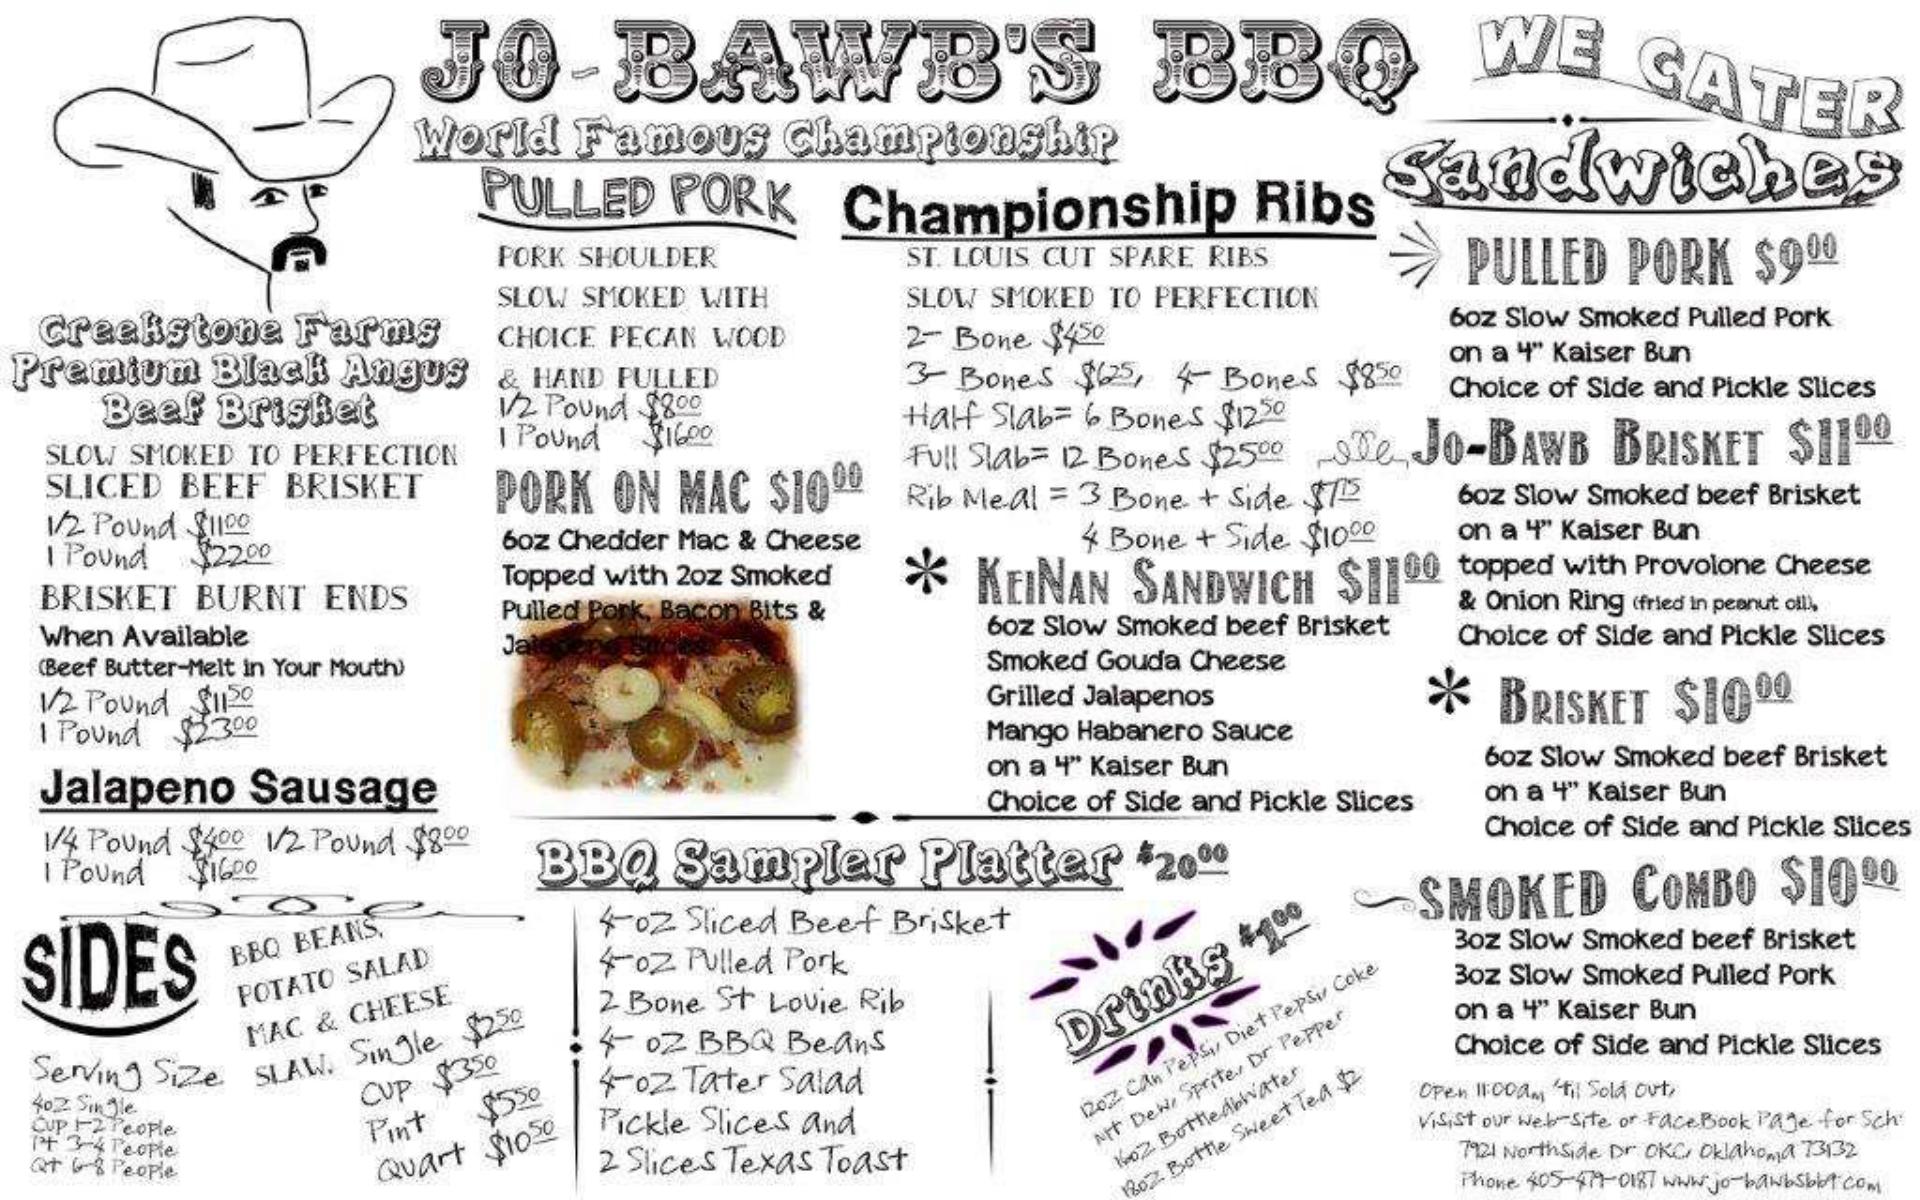 JO-BAWB'S BBQ
World Famous Championship
WE CATER
Creekstone Farms
Premium Black Angus
Beef Brisket
SLOW SMOKED TO PERFECTION
SLICED BEEF BRISKET
1/2 Pound $11.00
1 Pound $22.00
BRISKET BURNT ENDS
When Available
(Beef Butter-Melt in Your Mouth)
1/2 Pound $11.50
1 Pound $23.00
Jalapeno Sausage
1/4 Pound $4.00 1/2 Pound $8.00
1 Pound $16.00
SIDES
BBQ BEANS,
POTATO SALAD
MAC & CHEESE
SLAW. Single $2.50
CUP $3.50
Pint $5.50
Quart $10.50
Serving Size
4oz Single
Cup 1-2 People
Pt 3-4 People
Qt 6-8 People
PULLED PORK
PORK SHOULDER
SLOW SMOKED WITH
CHOICE PECAN WOOD
& HAND PULLED
1/2 Pound $8.00
1 Pound $16.00
PORK ON MAC $10.00
6oz Chedder Mac & Cheese
Topped with 2oz Smoked
Pulled Pork, Bacon Bits &
Jalapeno Slices
Championship Ribs
ST. LOUIS CUT SPARE RIBS
SLOW SMOKED TO PERFECTION
2- Bone $4.50
3- Bones $6.25, 4- Bones $8.50
Half Slab= 6 Bones $12.50
Full Slab= 12 Bones $25.00
Rib Meal = 3 Bone + Side $7.75
4 Bone + Side $10.00
* KEINAN SANDWICH $11.00
6oz Slow Smoked beef Brisket
Smoked Gouda Cheese
Grilled Jalapenos
Mango Habanero Sauce
on a 4" Kaiser Bun
Choice of Side and Pickle Slices
BBQ Sampler Platter $20.00
4-oz Sliced Beef Brisket
4-oz Pulled Pork
2 Bone St Louie Rib
4- oz BBQ Beans
4-oz Tater Salad
Pickle Slices and
2 Slices Texas Toast
Drinks $1.00
12oz Can Pepsi, Diet Pepsi, Coke
Mt Dew, Sprite, Dr Pepper
16oz BottledbWater
18oz Bottle Sweet Tea $2
Sandwiches
PULLED PORK $9.00
6oz Slow Smoked Pulled Pork
on a 4" Kaiser Bun
Choice of Side and Pickle Slices
JO-BAWB BRISKET $11.00
6oz Slow Smoked beef Brisket
on a 4" Kaiser Bun
topped with Provolone Cheese
& Onion Ring (fried in peanut oil),
Choice of Side and Pickle Slices
* BRISKET $10.00
6oz Slow Smoked beef Brisket
on a 4" Kaiser Bun
Choice of Side and Pickle Slices
SMOKED COMBO $10.00
3oz Slow Smoked beef Brisket
3oz Slow Smoked Pulled Pork
on a 4" Kaiser Bun
Choice of Side and Pickle Slices
Open 11:00am 'til Sold Out,
Visist our web-site or FaceBook Page for Sch
7921 Northside Dr OKC, Oklahoma 73132
Phone 405-479-0187 www.jo-bawbsbbq.com